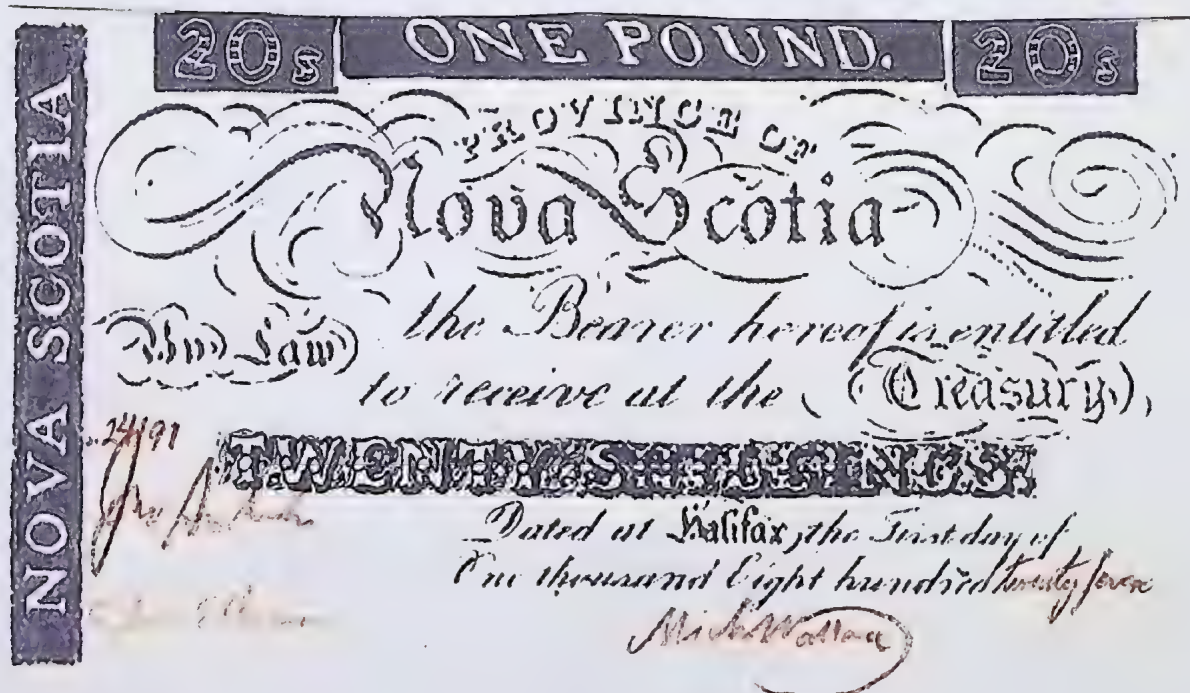 20s ONE POUND. 20s
NOVA SCOTIA
PROVINCE OF
Nova Scotia
By Law the Bearer hereof is entitled
to receive at the Treasury,
TWENTY SHILLINGS.
Dated at Halifax, the First day of
One thousand Eight hundred twenty seven
Mich Wallace